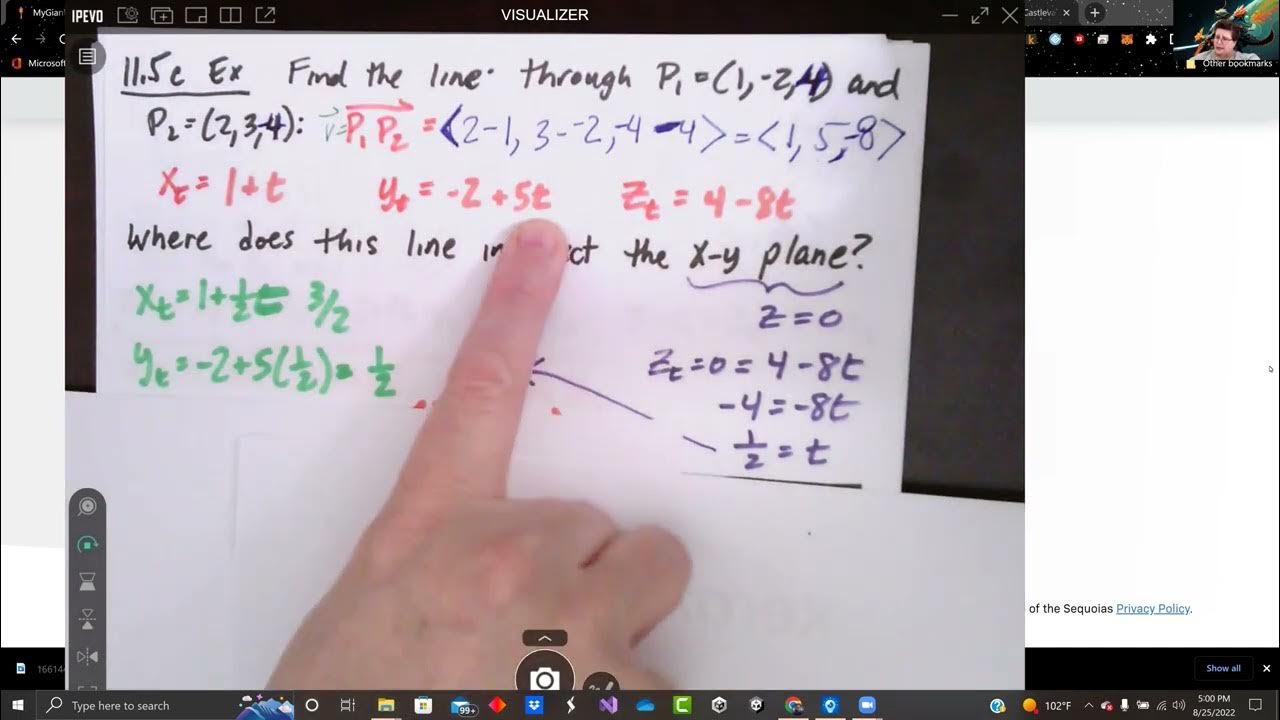 MyGian
Castleva
IPEVO
VISUALIZER
Microsof
Other bookmarks
11.5c Ex Find the line through P₁ = (1, -2, 4) and
P₂ = (2, 3, -4): v⃗ = P₁P₂ = <2-1, 3--2, -4-4> = <1, 5, -8>
xₜ = 1+t yₜ = -2+5t zₜ = 4-8t
Where does this line in ct the x-y plane?
z=0
xₜ = 1+½t 3/2
yₜ = -2+5(½) = ½
zₜ=0=4-8t
-4=-8t
½ = t
of the Sequoias Privacy Policy.
16614
Show all
Type here to search
99+
102°F
5:00 PM
8/25/2022